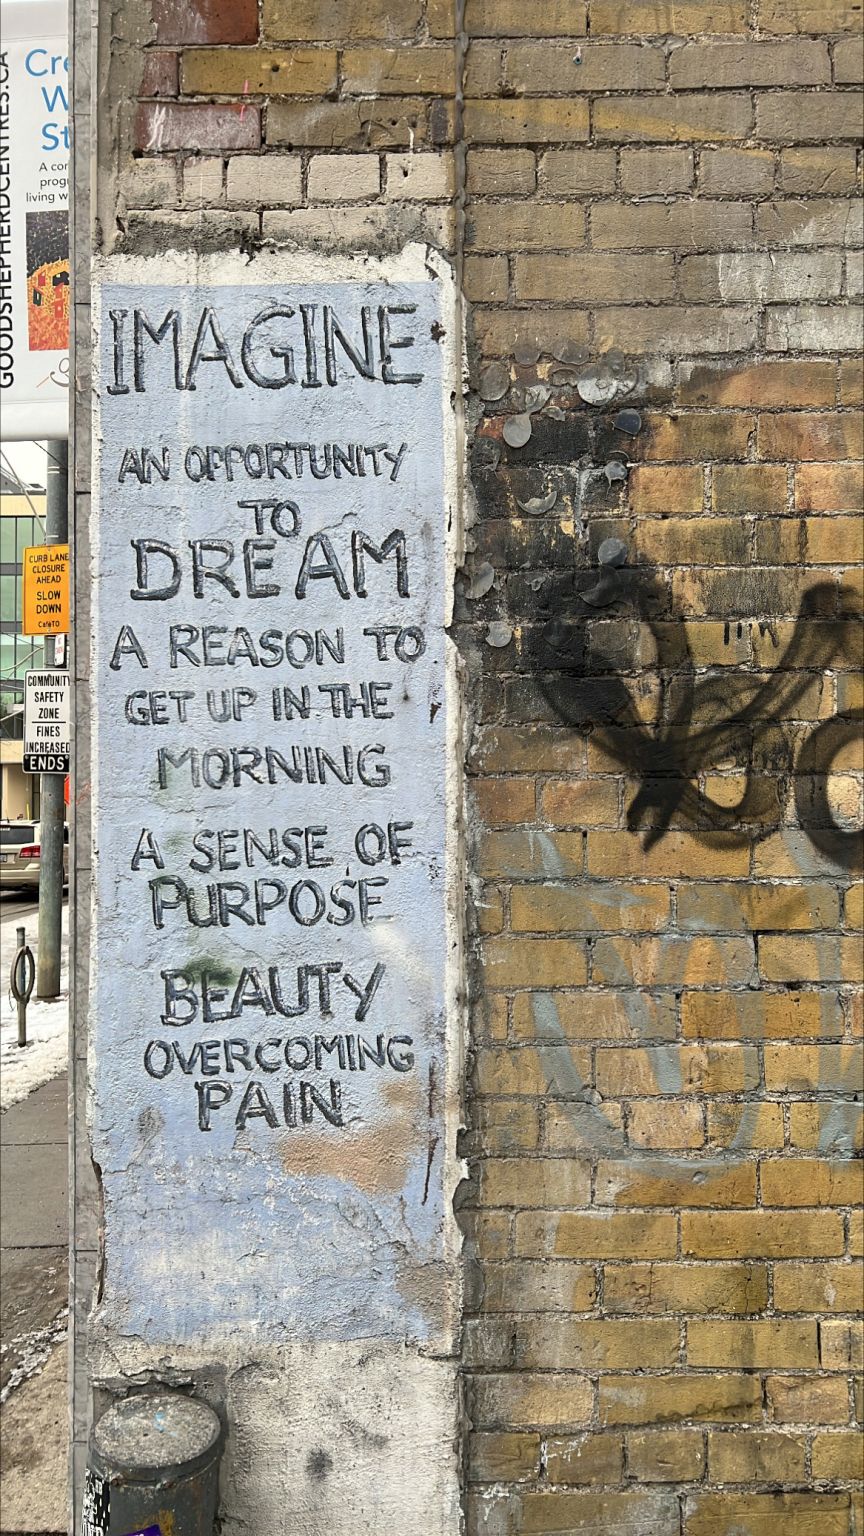 IMAGINE
AN OPPORTUNITY
TO
DREAM
A REASON TO
GET UP IN THE
MORNING
A SENSE OF
PURPOSE
BEAUTY
OVERCOMING
PAIN
GOODSHEPHERDCENTRES.CA
CURB LANE
CLOSURE
AHEAD
SLOW
DOWN
CafeTO
COMMUNITY
SAFETY
ZONE
FINES
INCREASED
ENDS